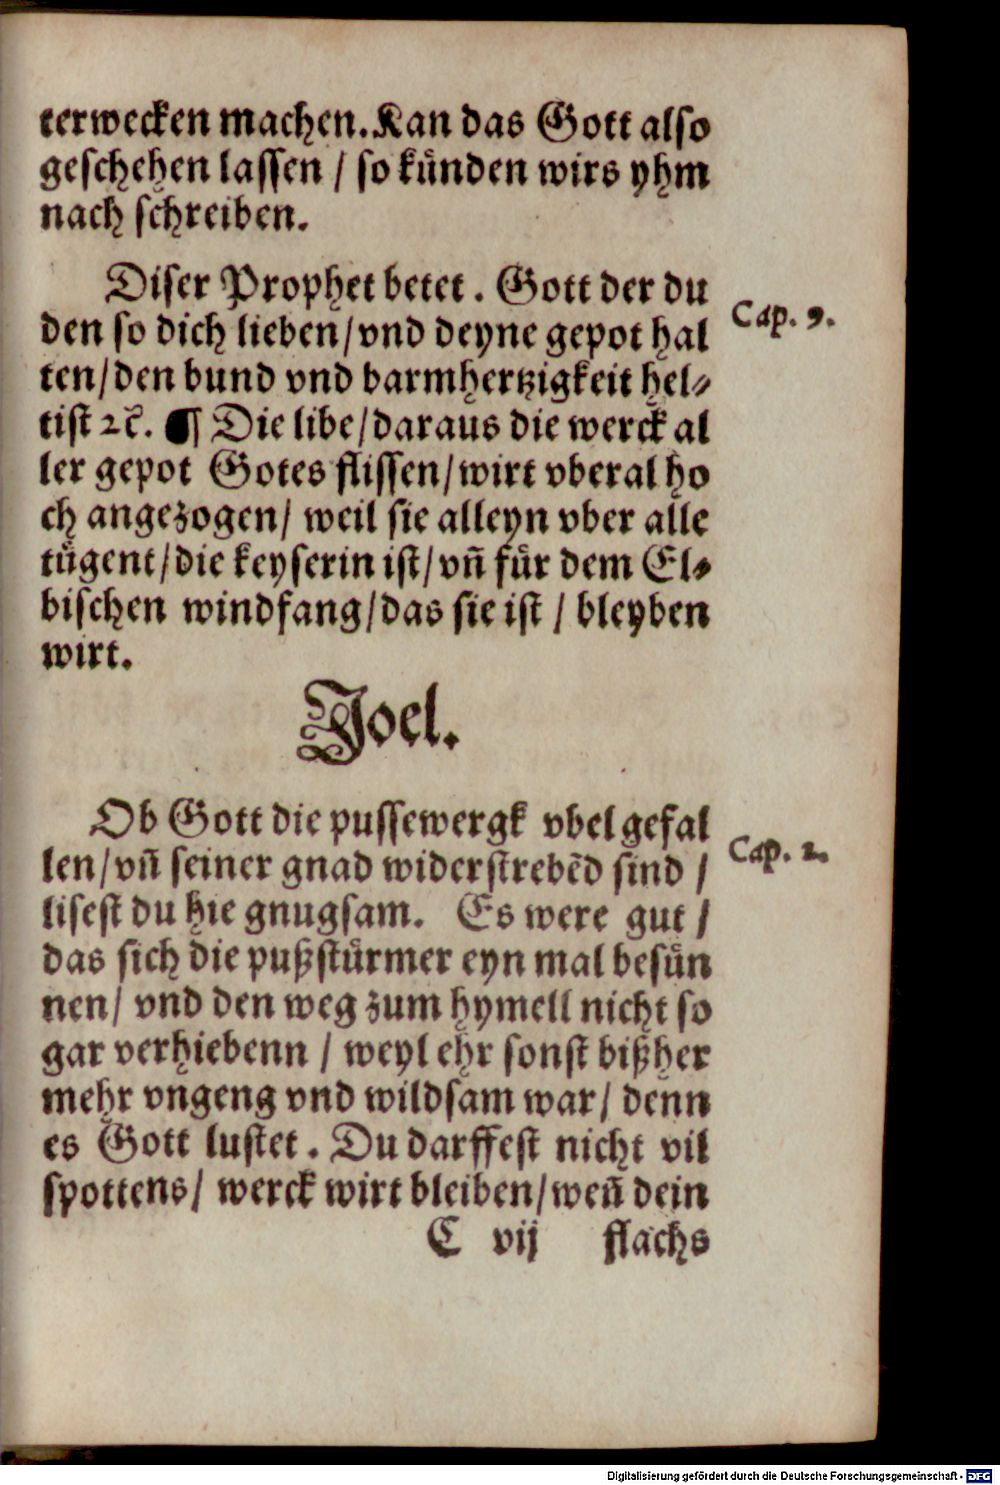 terwecken machen. Kan das Gott also
geschehen lassen / so künden wirs yhm
nach schreiben.
Diser Prophet betet. Gott der du
Cap. 9.
den so dich lieben/vnd deyne gepot hal
ten/den bund vnd barmhertzigkeit hel⸗
tist ⁊c̃. ¶ Die libe/daraus die werck al
ler gepot Gotes flissen/wirt vberal ho
ch angezogen/ weil sie alleyn vber alle
tügent/die keyserin ist/vñ für dem El⸗
bischen windfang/das sie ist / bleyben
wirt.
Joel.
Ob Gott die pussewergk vbel gefal
len/vñ seiner gnad widerstrebẽd sind /
Cap. 2.
lisest du hie gnugsam. Es were gut /
das sich die pußstürmer eyn mal besün
nen/ vnd den weg zum hymell nicht so
gar verhiebenn / weyl ehr sonst bißher
mehr vngeng vnd wildsam war/ denn
es Gott lustet. Du darffest nicht vil
spottens/ werck wirt bleiben/weñ dein
C vij flachs
Digitalisierung gefördert durch die Deutsche Forschungsgemeinschaft - DFG